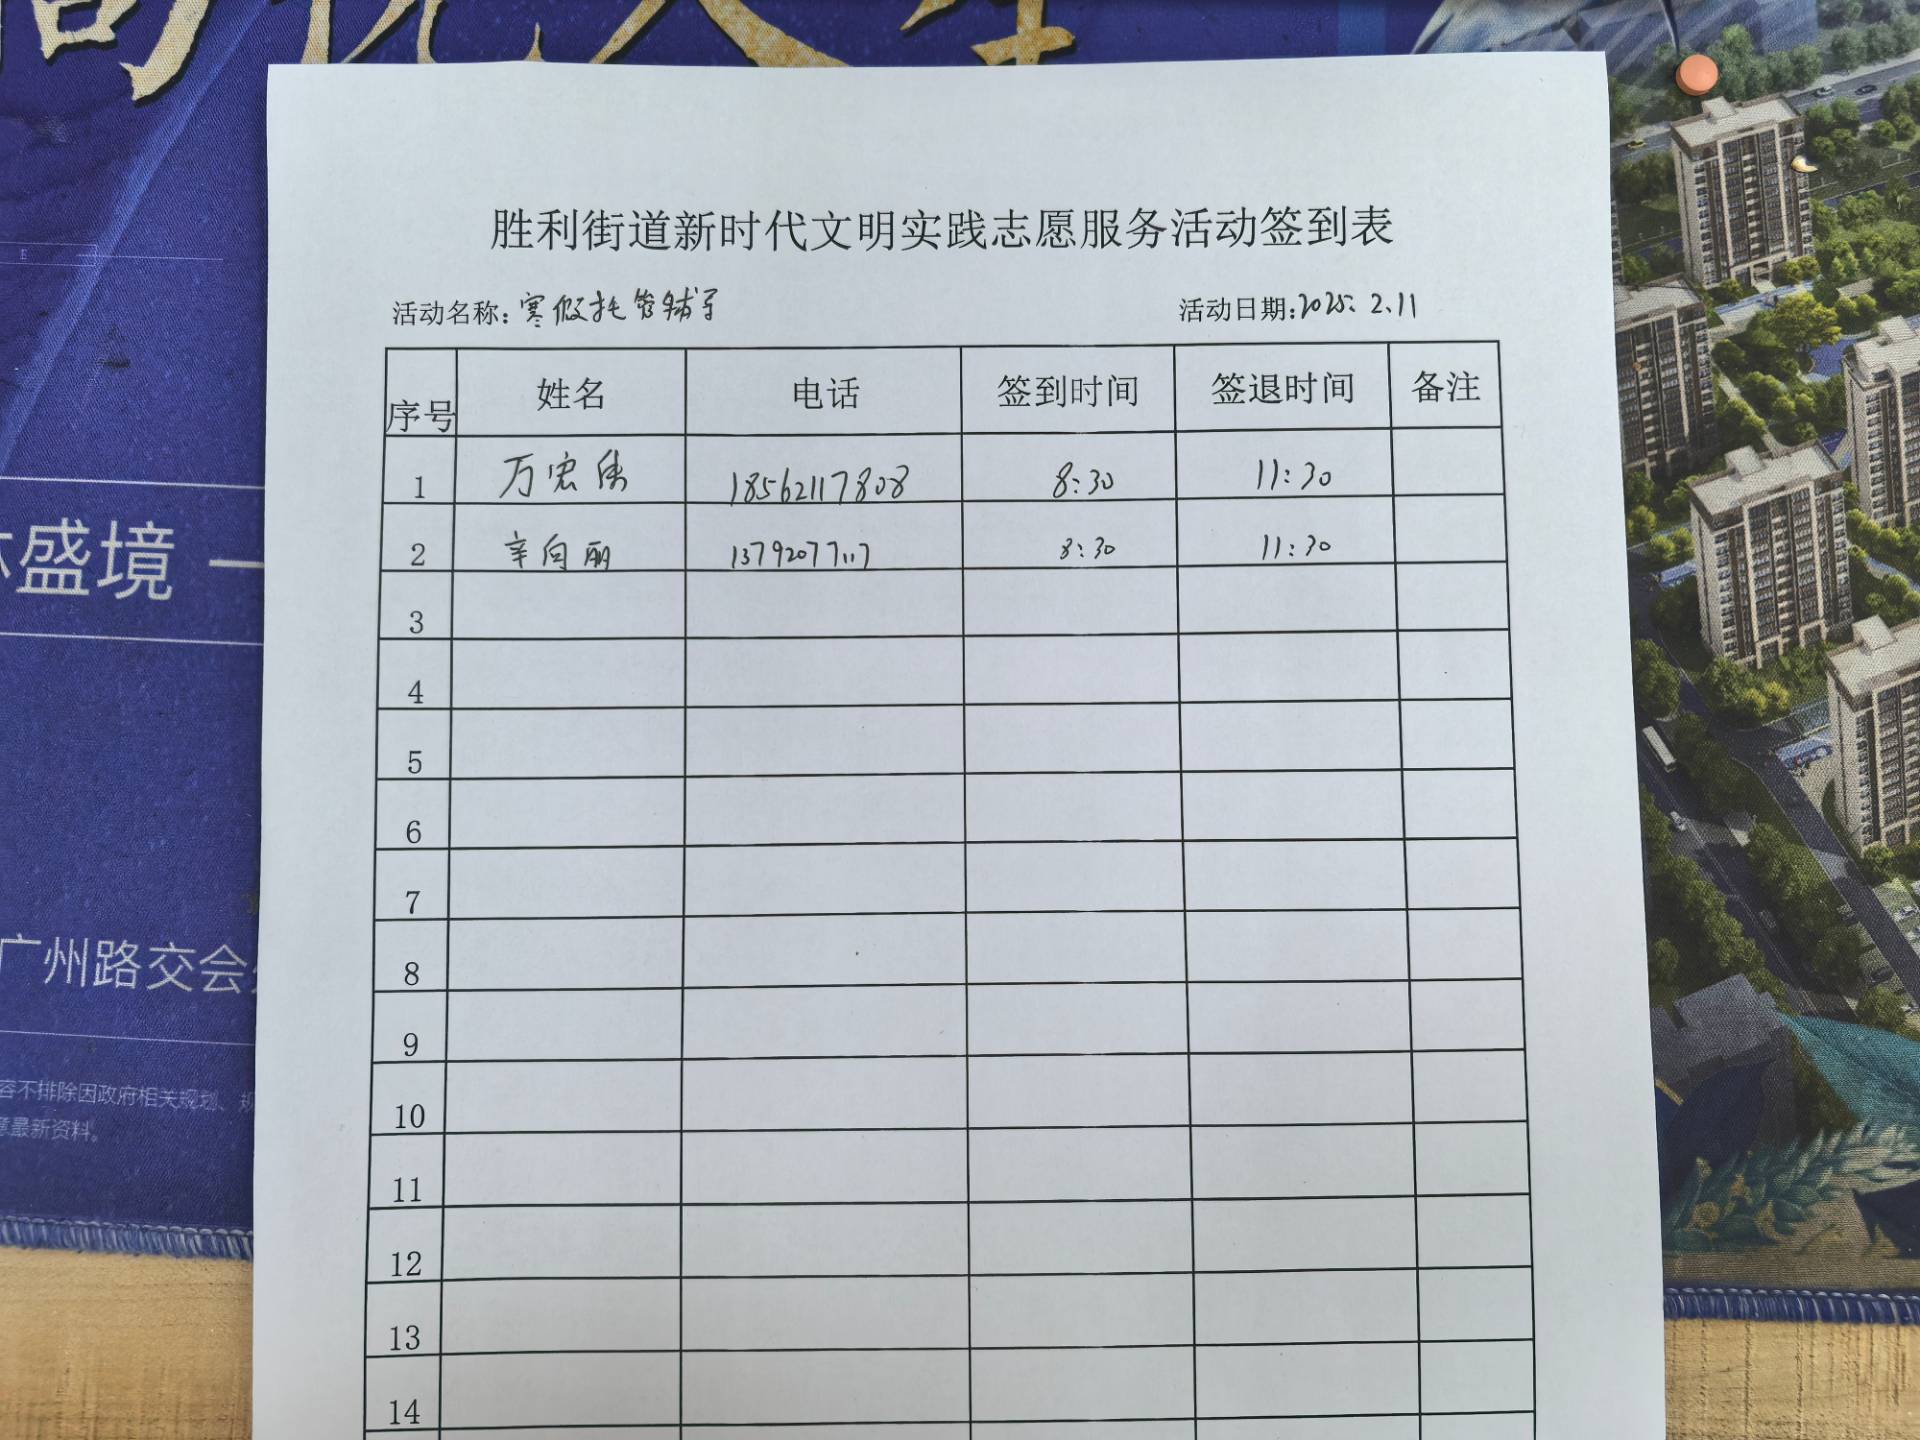 林盛境 一
广州路交会
容不排除因政府相关规划、规
意最新资料。
胜利街道新时代文明实践志愿服务活动签到表
活动名称：寒假托管辅导 活动日期：2025.2.11
序号 姓名 电话 签到时间 签退时间 备注
1 万宏 18562117808 8:30 11:30
2 辛向丽 13792077117 8:30 11:30
3
4
5
6
7
8
9
10
11
12
13
14